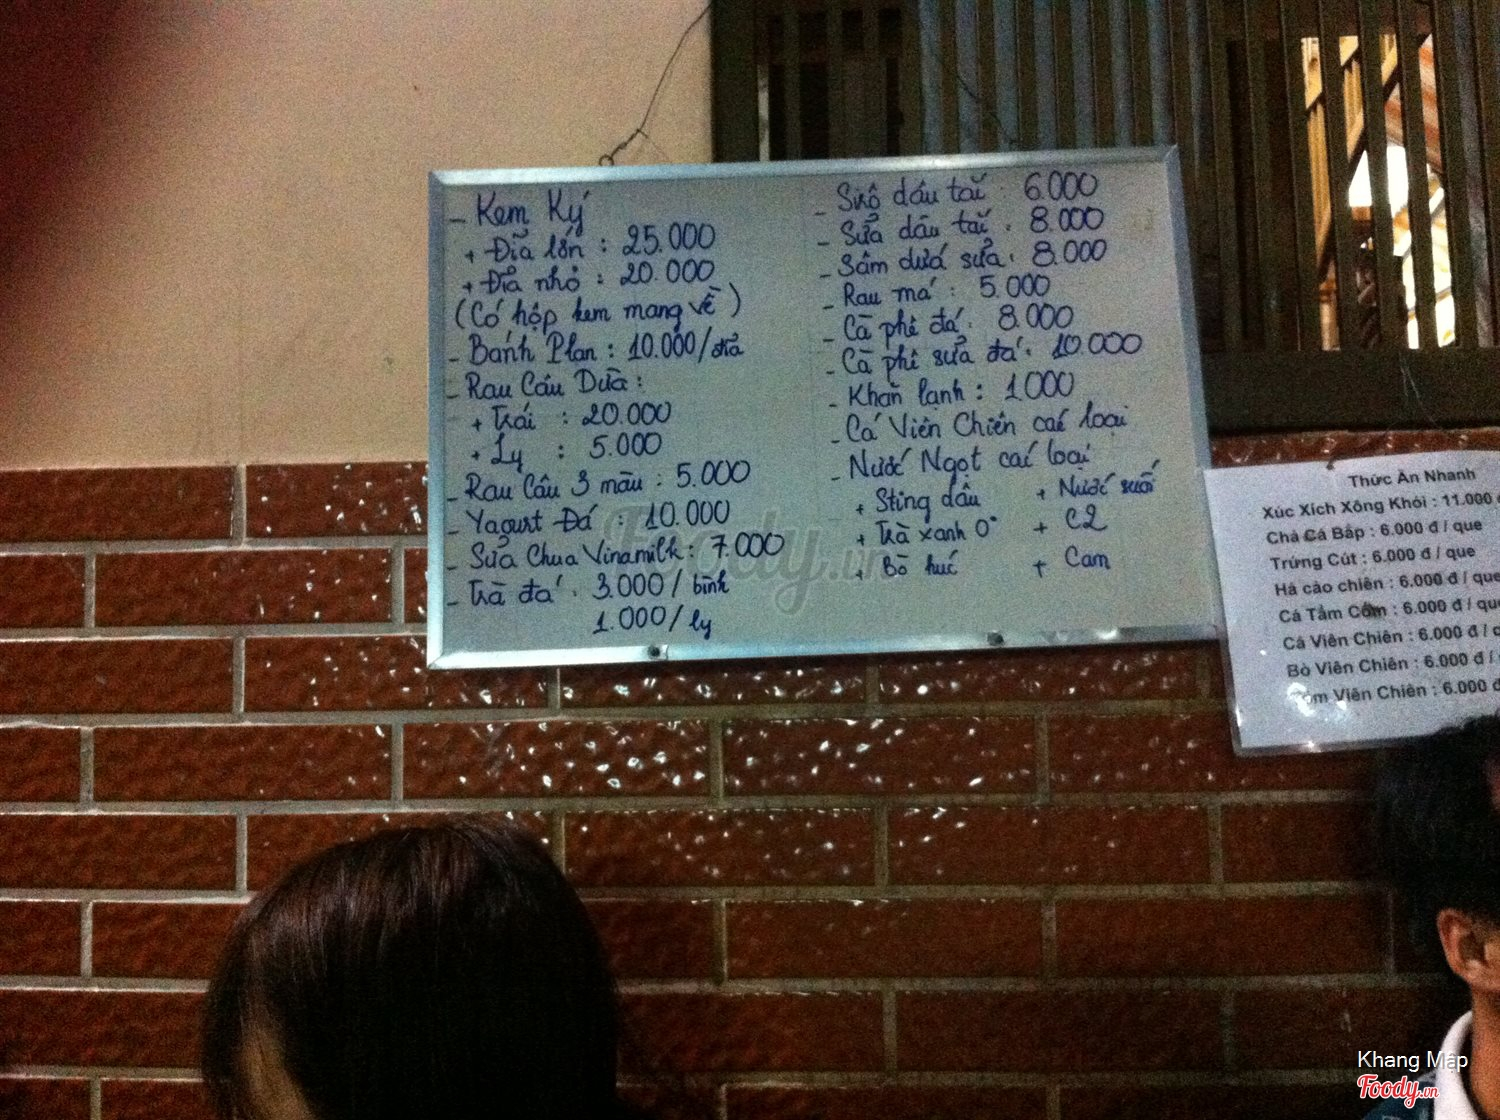 - Kem Ký
+ Đĩa lớn : 25.000
+ Đĩa nhỏ : 20.000
(Có hộp kem mang về)
- Bánh Plan : 10.000/đĩa
- Rau Câu Dừa :
+ Trái : 20.000
+ Ly : 5.000
- Rau Câu 3 màu : 5.000
- Yaourt Đá : 10.000
- Sửa Chua Vinamilk : 7.000
- Trà đá : 3.000 / bình
1.000 / ly
- Sirô dâu tai : 6.000
- Sửa dâu tai : 8.000
- Sâm dứa sửa : 8.000
- Rau má : 5.000
- Cà phê đá : 8.000
- Cà phê sửa đá : 10.000
- Khăn lạnh : 1000
- Cá Viên Chiên các loại
- Nước Ngọt các loại
+ Sting dâu + Nước suối
+ Trà xanh 0° + C2
+ Bò húc + Cam
Thức Ăn Nhanh
Xúc Xích Xông Khói : 11.000
Chả Cá Bắp : 6.000 đ / que
Trứng Cút : 6.000 đ / que
Há cảo chiên : 6.000 đ / que
Cá Tẩm Cốm : 6.000 đ / que
Cá Viên Chiên : 6.000 đ /
Bò Viên Chiên : 6.000 đ /
Viên Chiên : 6.000 đ
Foody.vn
Khang Mập
Foody.vn